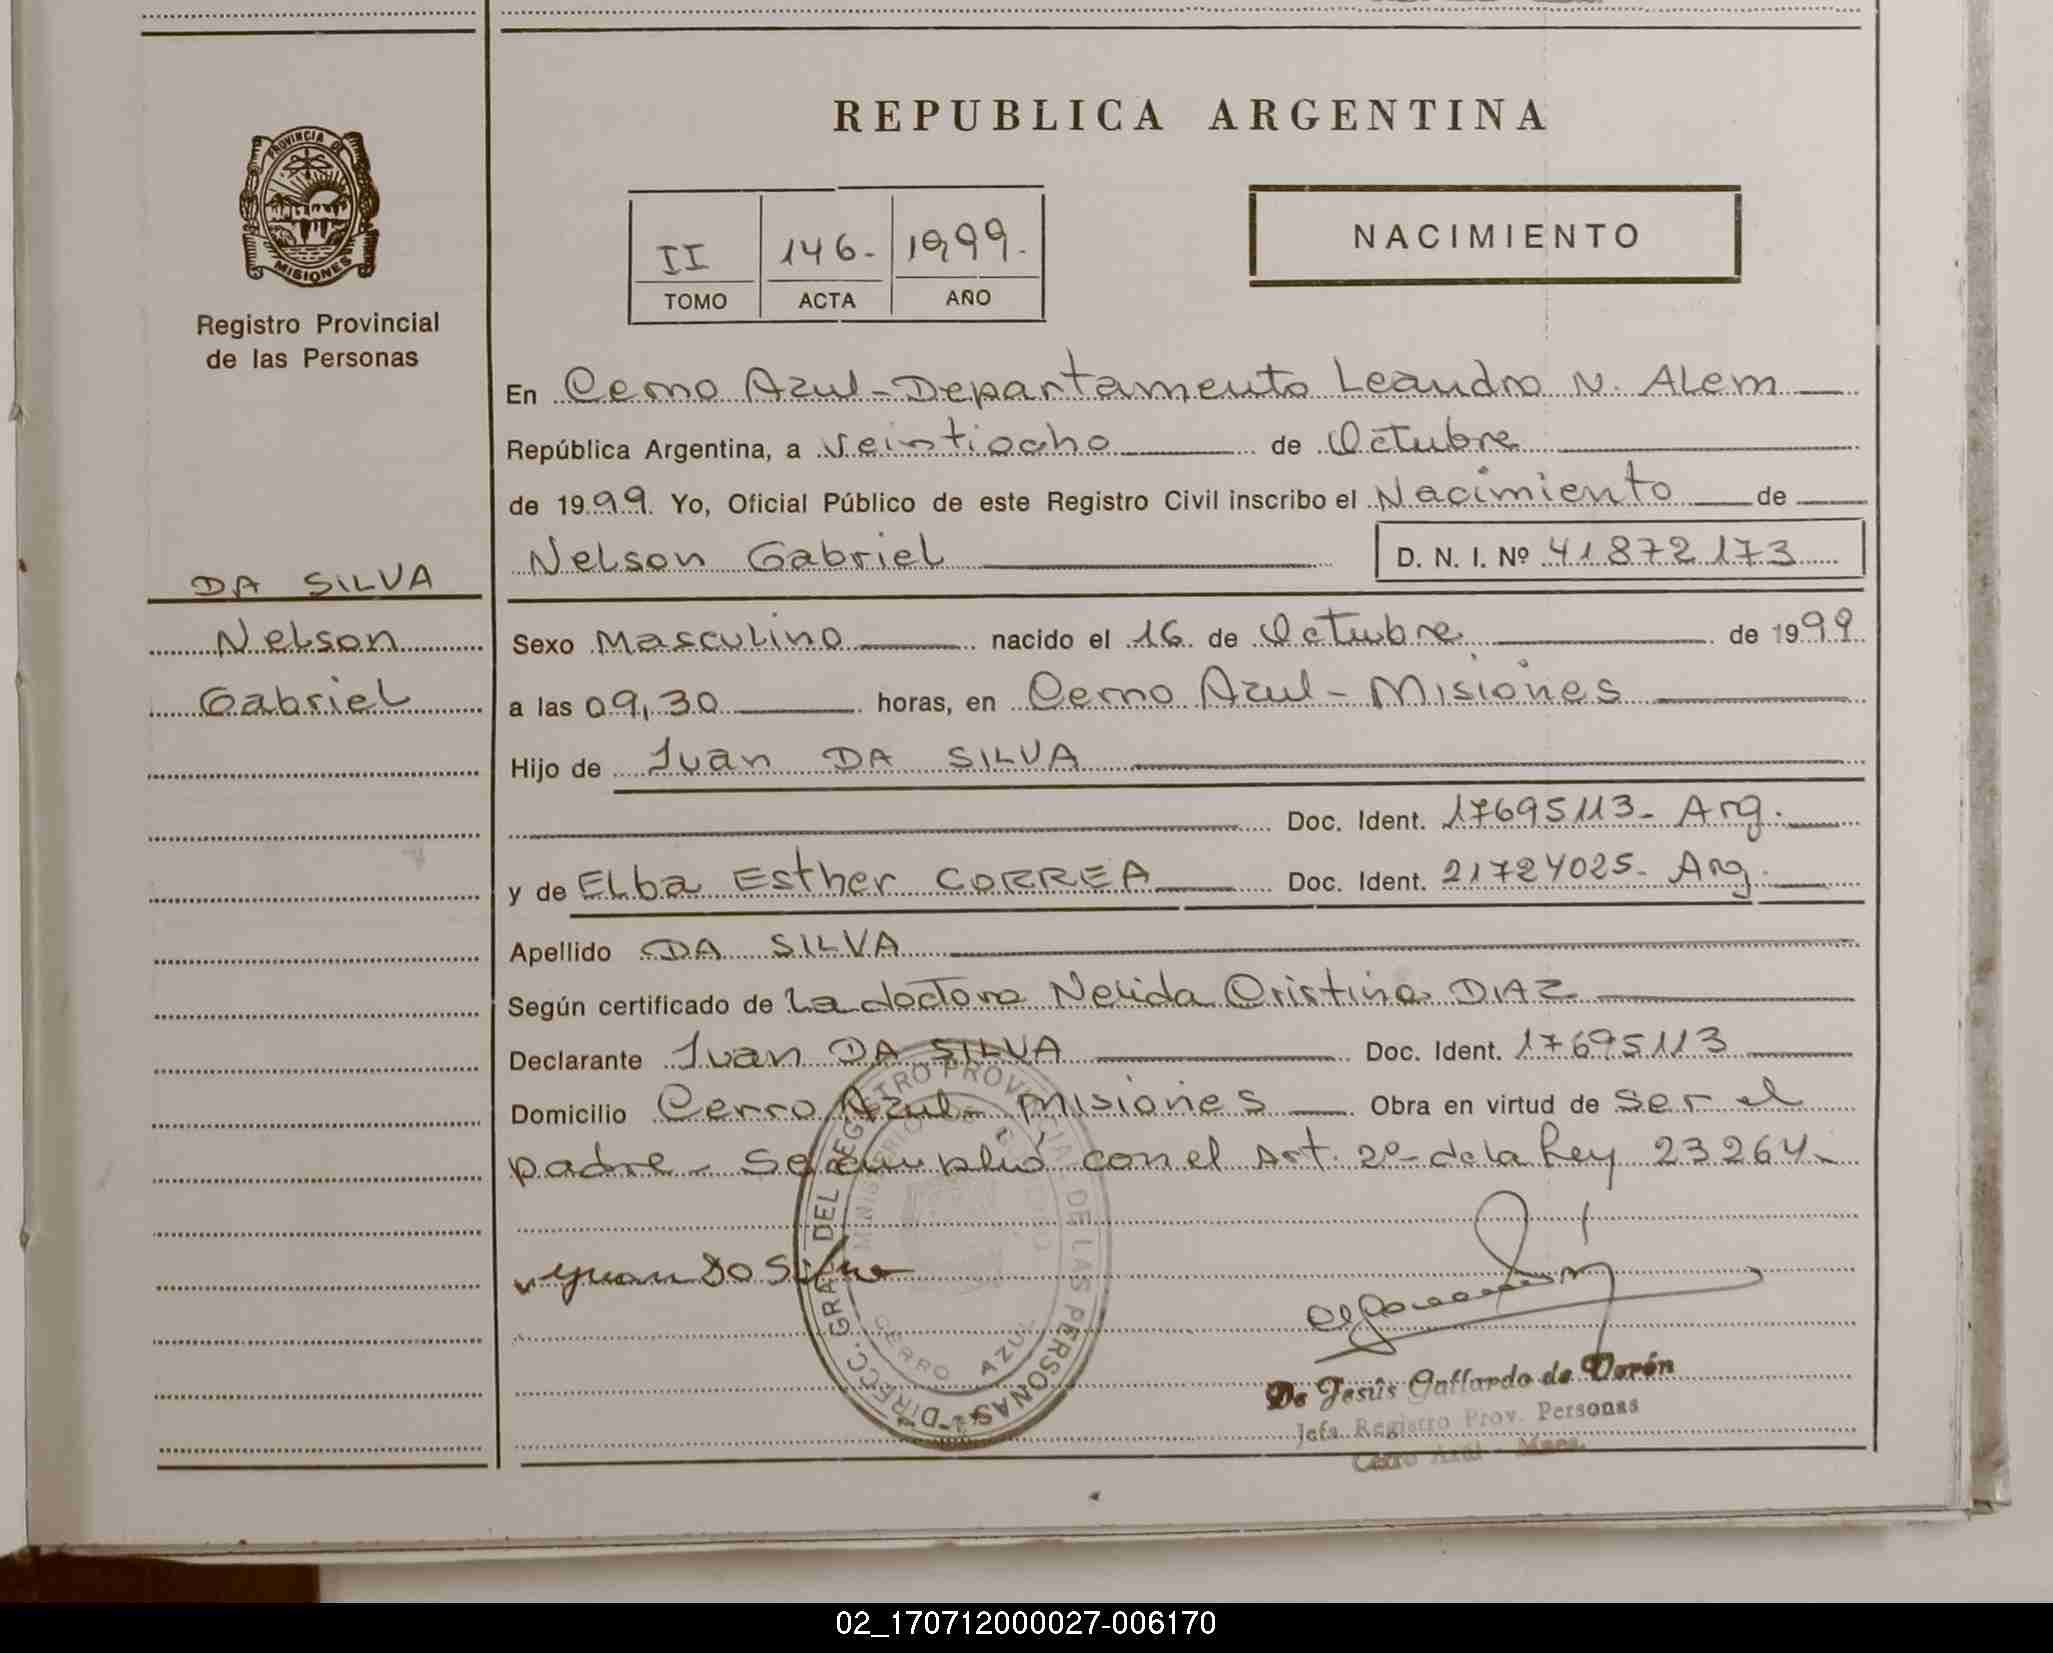 REPUBLICA ARGENTINA
PROVINCIA DE
MISIONES
Registro Provincial
de las Personas
II 146- 1999-
TOMO ACTA AÑO
NACIMIENTO
En Cerro Azul-Departamento Leandro N. Alem
República Argentina, a veintiocho de Octubre
de 1999 Yo, Oficial Público de este Registro Civil inscribo el Nacimiento de
Nelson Gabriel D. N. I. Nº 41872173
DA SILVA
Nelson
Gabriel
Sexo Masculino nacido el 16 de Octubre de 1999
a las 09,30 horas, en Cerro Azul-Misiones
Hijo de Juan DA SILVA
Doc. Ident. 17695113- Arg.
y de Elba Esther CORREA Doc. Ident. 21724025- Arg.
Apellido DA SILVA
Según certificado de la doctora Nelida Cristina DIAZ
Declarante Juan DA SILVA Doc. Ident. 17695113
Domicilio Cerro Azul-Misiones Obra en virtud de ser el
padre- Se cumplió con el Art. 2º- de la Ley 23264-
DIRECC. GRAL. DEL REGISTRO PROVINCIAL DE LAS PERSONAS
MINISTERIO DE GOBIERNO
CERRO AZUL
Juan Da Silva
De Jesús Gallardo de Varón
Jefa Registro Prov. Personas
Cerro Azul - Mnes.
02_170712000027-006170